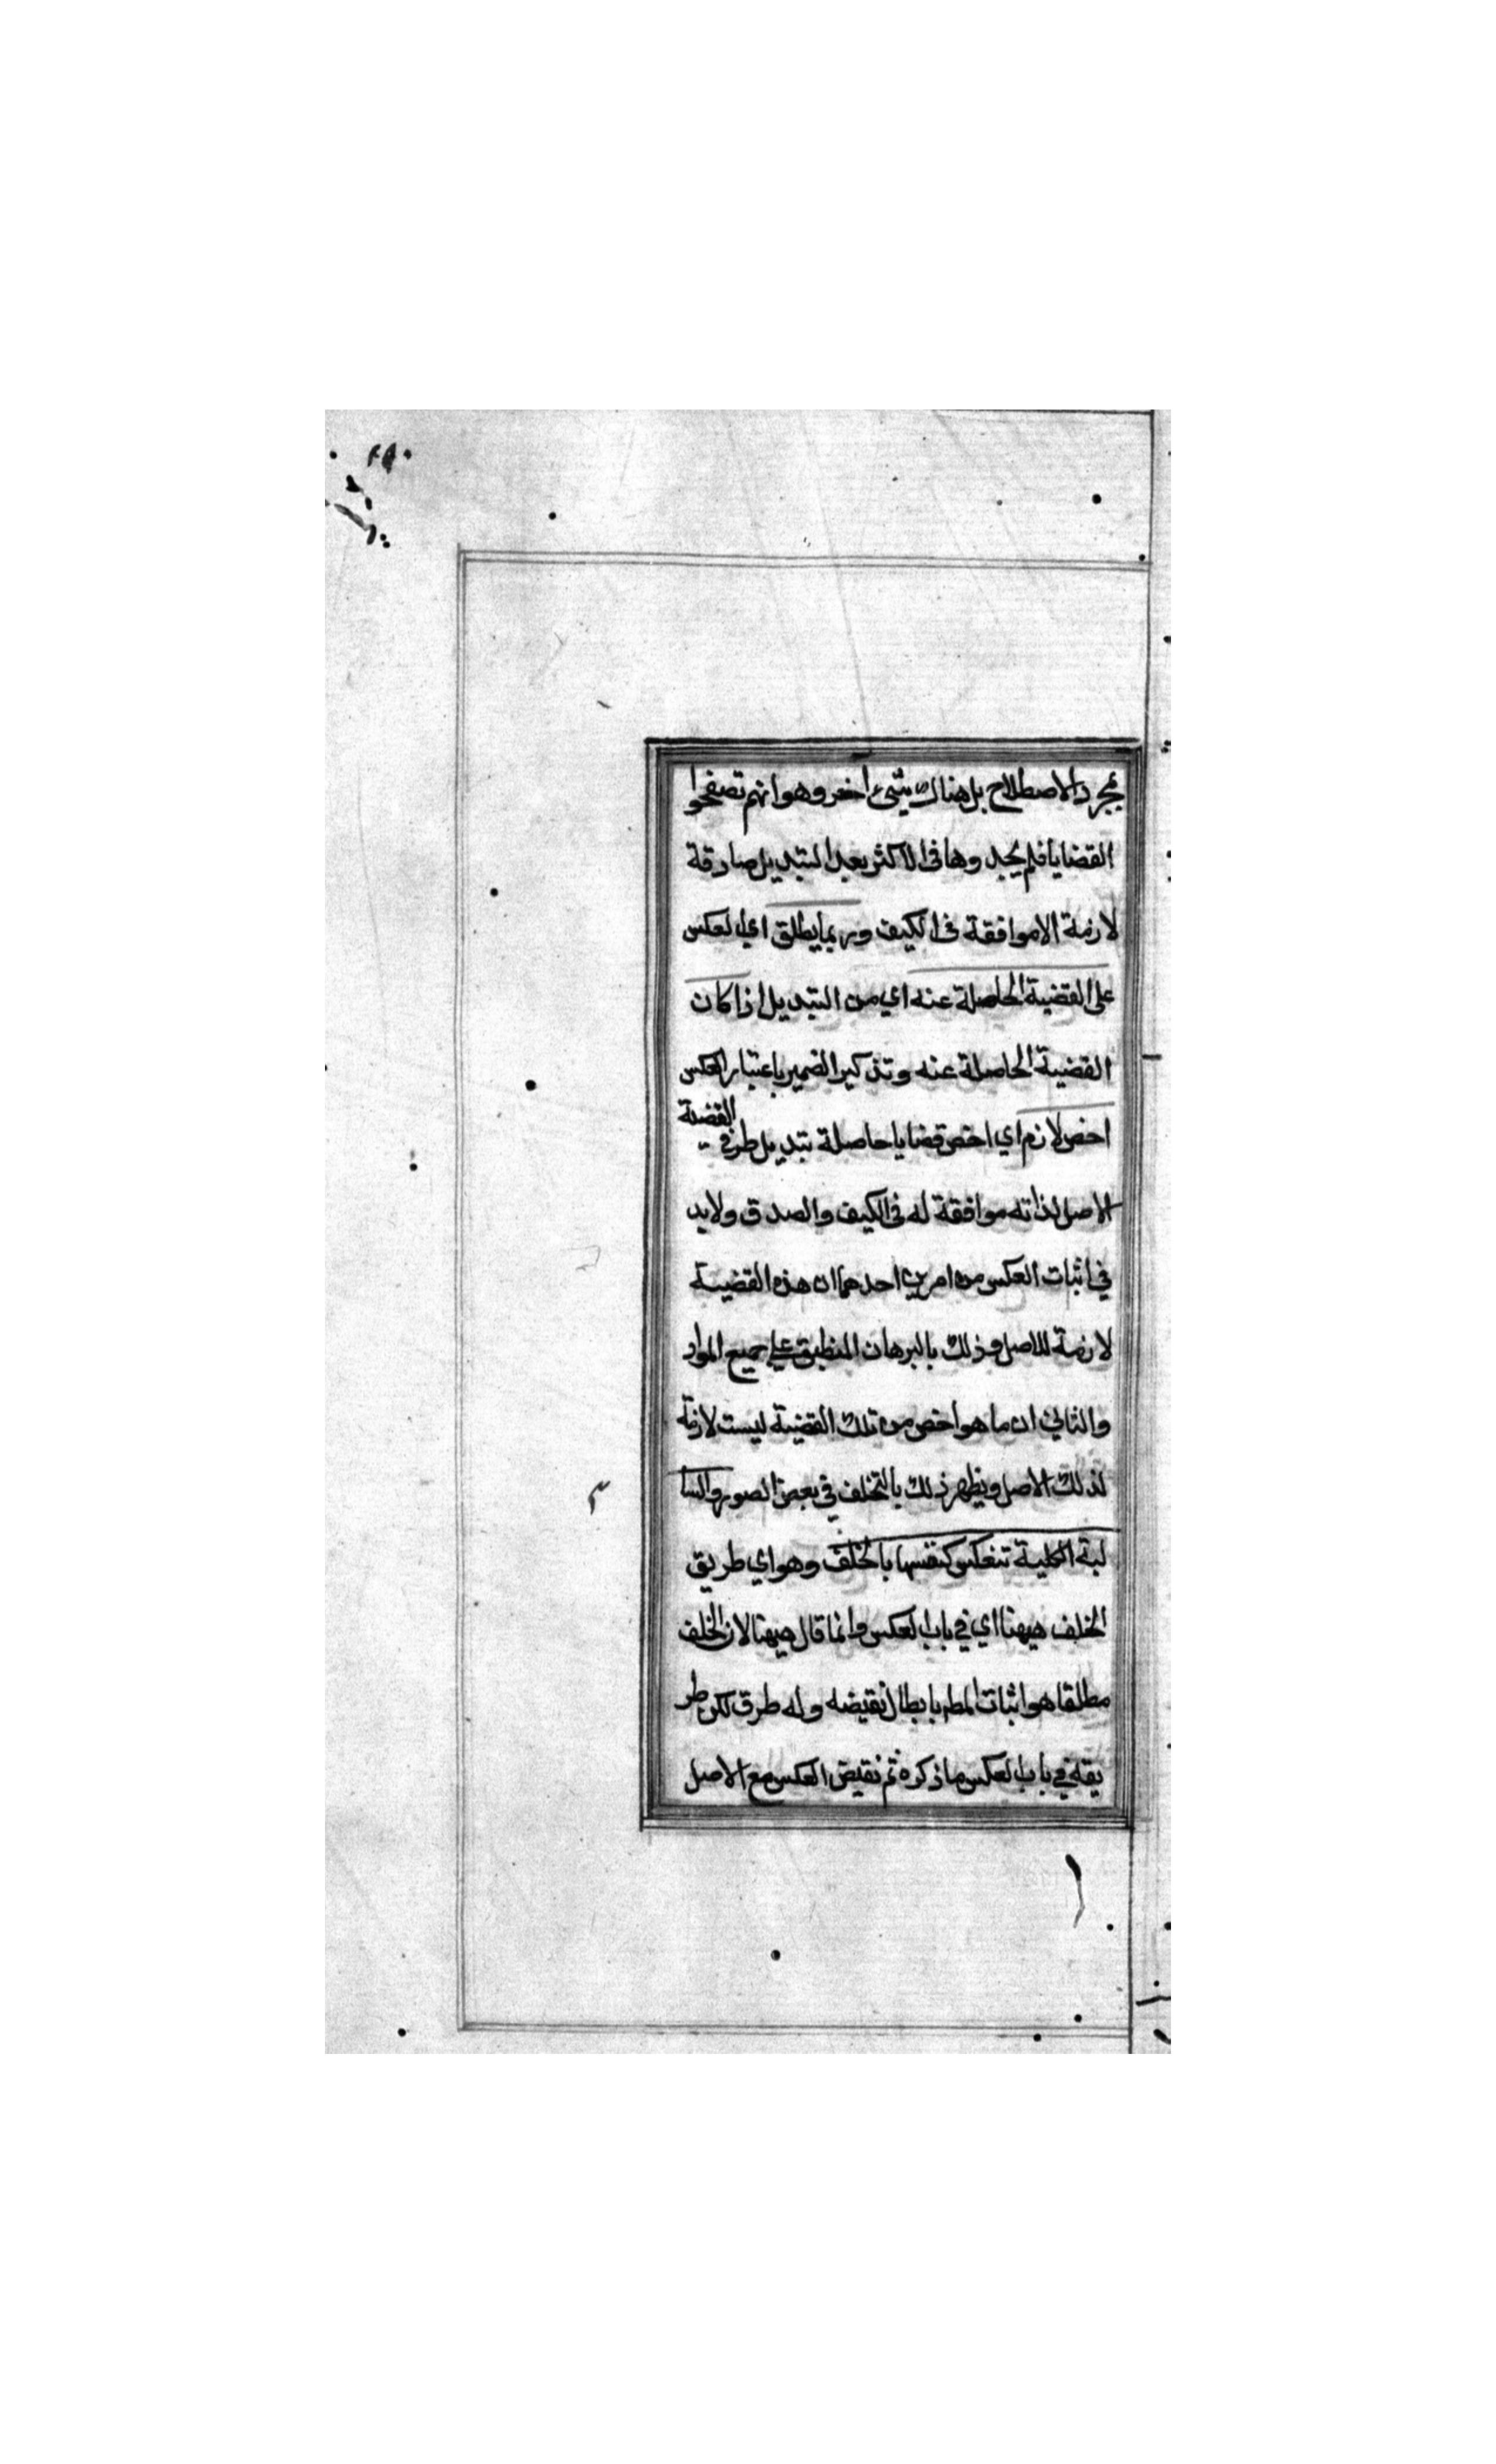 مجرد الاصطلاح بل هناك شئ آخر وهو انهم تصفحوا
القضايا فلم يجدوها فى الاكثر بعد التبديل صادقة
لازمة الا موافقة فى الكيف وربما يطلق اي العكس
على القضية الحاصلة عنه اي من التبديل اذا كان
القضية الحاصلة عنه وتذكير الضمير باعتبار العكس
اخص لازم اي اخص قضايا حاصلة بتبديل طرفي القضية
الاصل لذاته موافقة له فى الكيف والصدق ولابد
في اثبات العكس من امرين احدهما ان هذه القضية
لازمة للاصل وذلك بالبرهان المنطبق على جميع المواد
والثاني ان ما هو اخص من تلك القضية ليست لازمة
لذلك الاصل ويظهر ذلك بالتخلف في بعض الصور والسا
لبة الكلية تنعكس كنفسها بالخلف وهو اي طريق
الخلف ههنا اي في باب العكس وانما قال ههنا لان الخلف
مطلقا هو اثبات المط بابطال نقيضه وله طرق لكن طر
يقه في باب العكس ما ذكره ضم نقيض العكس مع الاصل